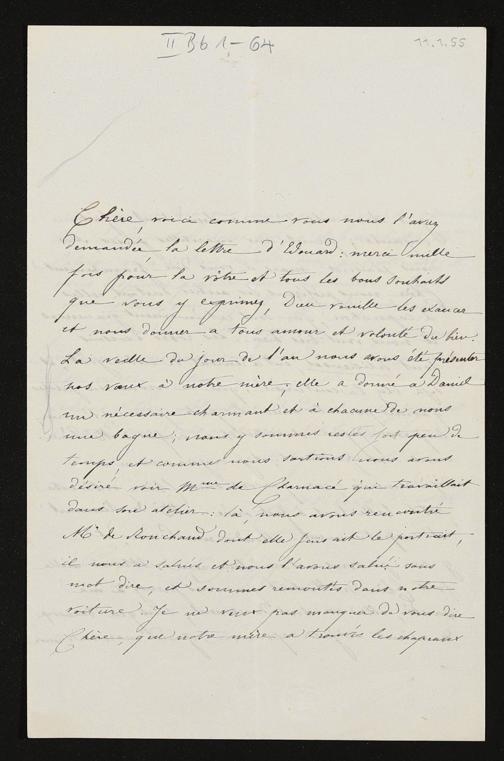 II B6 1-64
11.1.55
Chère, voici comme vous nous l'avez
demandée la lettre d'Edouard; merci mille
fois pour la vôtre et tous les bons souhaits
que vous y exprimez, Dieu veuille les exaucer
et nous donner a tous amour et volonté du bien.
La veille du jour de l'an nous avons été présenter
nos vœux à notre mère; elle a donné a Daniel
un nécessaire charmant et à chacune de nous
une bague; nous y sommes restés fort peu de
temps, et comme nous sortions nous avons
désiré voir Mme de Charnacé qui travaillait
dans son atelier: là, nous avons rencontré
Mr de Ronchaud dont elle faisait le portrait,
il nous a salués et nous l'avons salué sans
mot dire, et sommes remontés dans notre
voiture. Je ne veux pas manquer de vous dire
Chère, que notre mère a trouvés les chapeaux